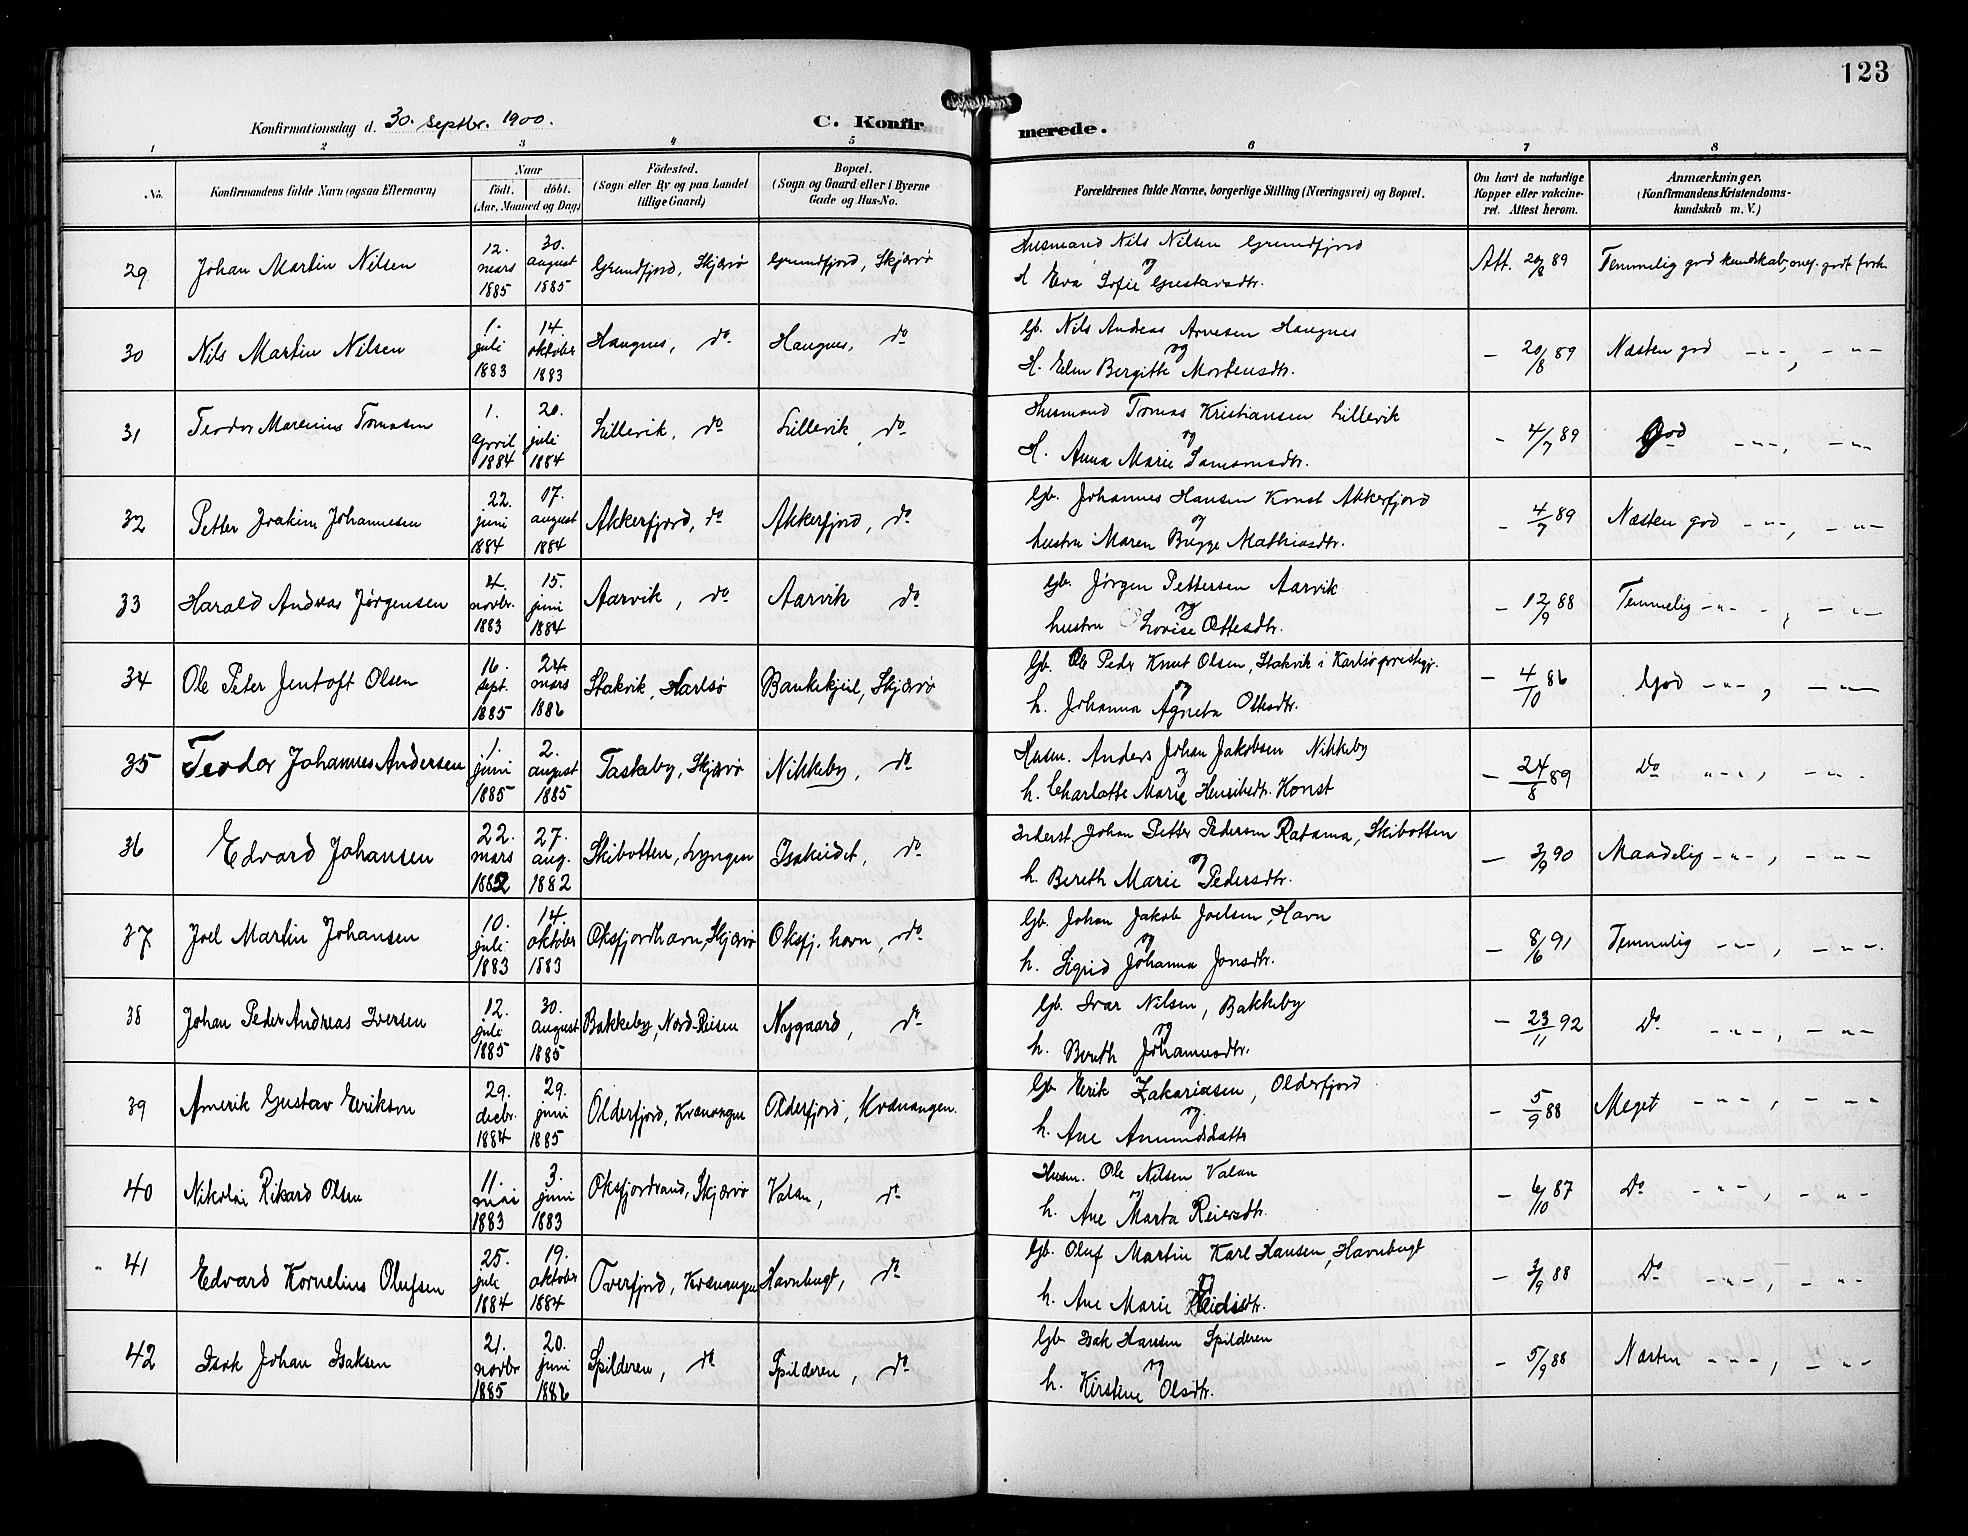 123
Konfirmationsdag d. 30. septbr. 1900.
C. Konfirmerede.
1 2 3 4 5 6 7 8
No.
Konfirmandens fulde Navn (ogsaa Efternavn)
Naar
födt. döbt.
(Aar, Maaned og Dag)
Födested.
(Sogn eller By og paa Landet
tillige Gaard)
Bopæl.
(Sogn og Gaard eller i Byerne
Gade og Hus-No.
Forældrenes fulde Navne, borgerlige Stilling (Næringsvei) og Bopæl.
Om havt de naturlige
Kopper eller vakcine-
ret. Attest herom.
Anmærkninger.
(Konfirmandens Kristendoms-
kundskab m. V.)
29 Johan Martin Nilsen 12. mars 1885 30. august 1885 Grundfjord, Skjærvø Grundfjord, Skjærvø Husmand Nils Nilsen Grundfjord
og
H Eva Sofie Gustavsdtr. Att. 20/8 89 Temmelig god kundskab, meg. godt forh.
30 Nils Martin Nilsen 1. juli 1883 14. oktober 1883 Haugnes, do Haugnes, do Gb. Nils Andreas Arnesen Haugnes
og
H. Elen Bergitte Mortensdtr. - 20/8 89 Næsten god -"-, -"-
31 Teodor Marenius Tomasen 1. april 1884 20. juli 1884 Lillevik, do Lillevik, do Husmand Tomas Kristiansen Lillevik
og
H. Anna Marie Samsonsdtr. - 4/7 89 God -"-, -"-
32 Petter Joakim Johannesen 22. juni 1884 17. august 1884 Akkerfjord, do Akkerfjord, do Gb. Johannes Hansen Konst Akkerfjord
og
hustru Maren Bugge Mathiasdtr. - 4/7 89 Næsten god -"-, -"-
33 Harald Andreas Jørgensen 4. novbr. 1883 15. juni 1884 Aarvik, do Aarvik do Gb. Jørgen Pettersen Aarvik
og
hustru Lovise Ottesdtr. - 12/9 88 Temmelig -"-, -"-
34 Ole Peter Jentoft Olsen 16. sept. 1885 24. mars 1886 Stakvik, Karlsø Bankekjeil, Skjærvø Gb. Ole Peder Knut Olsen, Stakvik i Karlsø prestegj.
og
h. Johanna Agneta Ottesdtr. - 4/10 86 God -"-, -"-
35 Teodor Johannes Andersen 1. juni 1885 2. august 1885 Taskeby, Skjærvø Nikkeby, do Husm. Anders Johan Jakobsen Nikkeby
og
h. Charlotte Marie Henriksdtr. Konst - 24/8 89 Do -"-, -"-
36 Edvard Johansen 22. mars 1882 27. aug. 1882 Skibotten, Lyngen Isakeidet, do Inderst Johan Petter Pedersen Ratama, Skibotten
og
h. Bereth Marie Pedersdtr. - 3/9 90 Maadelig -"-, -"-
37 Joel Martin Johansen 10. juli 1883 14. oktober 1883 Oksfjordhavn, Skjærvø Oksfj. havn, do Gb. Johan Jakob Joelsen, Havn
og
h. Sigrid Johanna Jonsdtr. - 8/6 91 Temmelig -"-, -"-
38 Johan Peder Andreas Iversen 12. juli 1885 30. august 1885 Bakkeby, Nord-Reisen Nygaard, do Gb. Ivar Nilsen, Bakkeby
og
h. Bereth Johannesdtr. - 23/11 92 Do -"-, -"-
39 Amerik Gustav Eriksen 29. decbr. 1884 29. juni 1885 Olderfjord, Kvænangen Olderfjord, Kvænangen. Gb Erik Zakariasen, Olderfjord
og
h. Ane Amundsdatter - 5/9 88 Meget -"-, -"-
40 Nikolai Rikard Olsen 11. mai 1883 3. juni 1883 Oksfjordvand, Skjærvø Valan, do Husm. Ole Nilsen Valan
og
h. Ane Marta Reiersdtr. - 6/10 87 Do -"-, -"-
41 Edvard Kornelius Olufsen 25. juli 1884 19. oktober 1884 Tverfjord, Kvænangen Havnbugt, do Gb. Oluf Martin Karl Hansen, Havnbugt
og
h. Ane Marie - 3/9 88 Do -"-, -"-
42 Isak Johan Isaksen 21. novbr 1885 20. juni 1886 Spilderen, do Spilderen, do Gb. Isak Hansen Spilderen
og
h. Kirstine Olsdtr. - 5/9 88 Næsten -"-, -"-